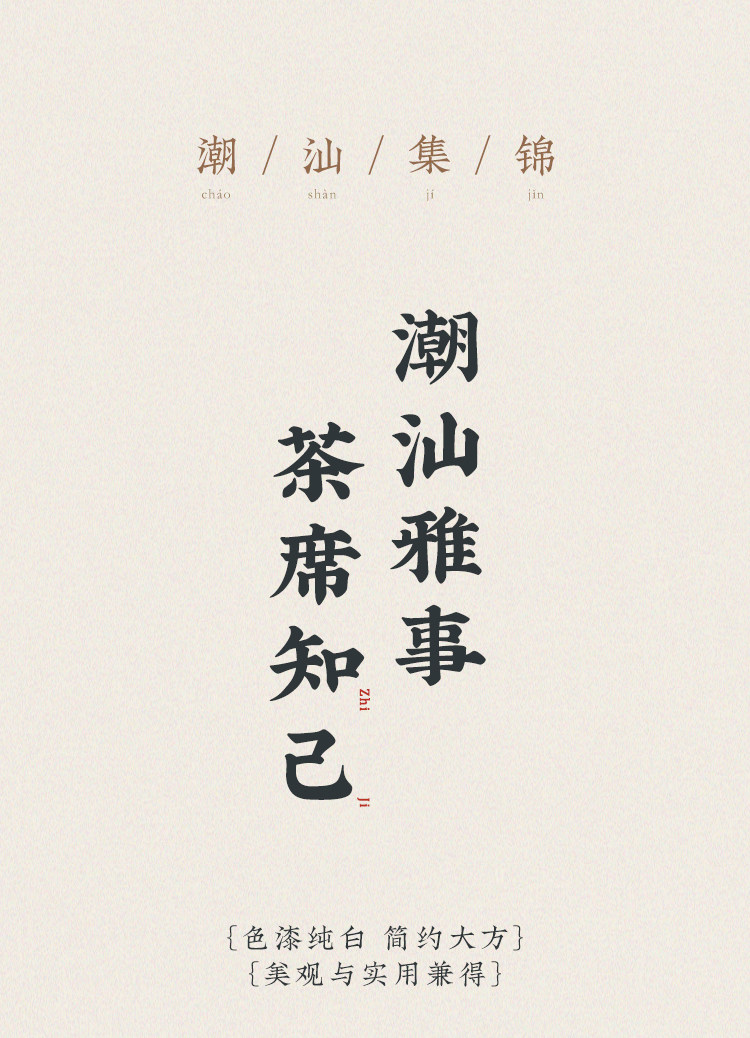 潮/汕/集/锦
cháo shàn jí jǐn
潮汕雅事
茶席知己
Zhi Ji
{色漆纯白 简约大方}
{美观与实用兼得}